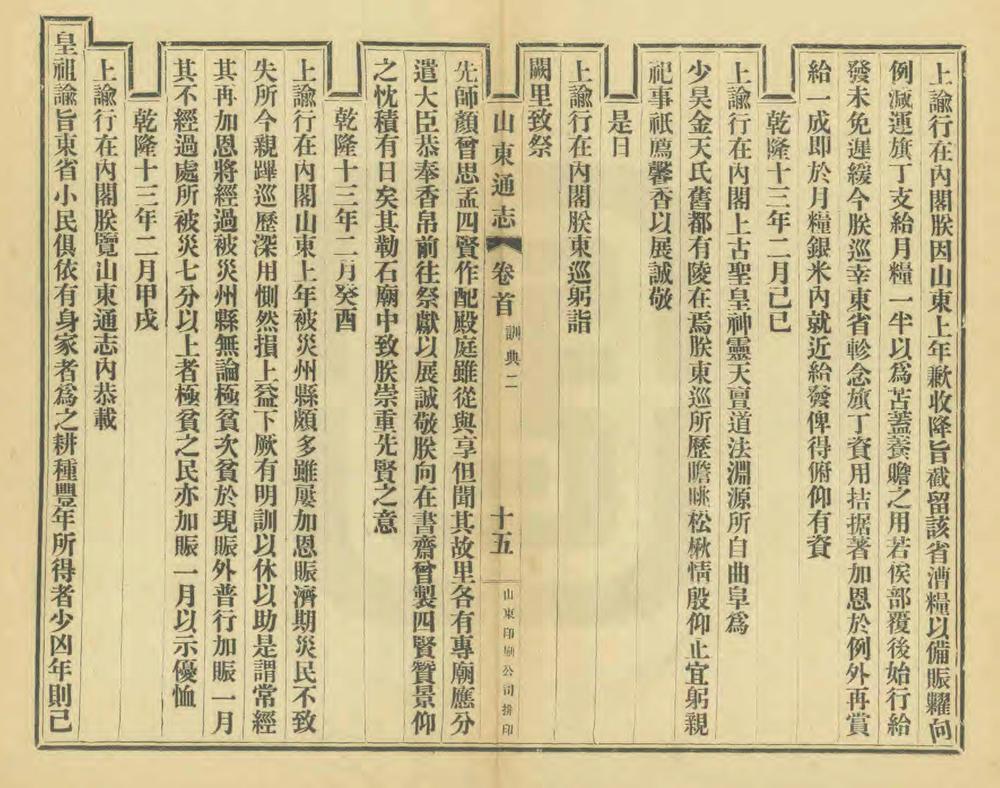 上諭行在內閣朕因山東上年歉收降旨截留該省漕糧以備賑糶向
例減運旗丁支給月糧一半以為苫蓋養贍之用若俟部覆後始行給
發未免遲緩今朕巡幸東省軫念旗丁資用拮据著加恩於例外再賞
給一成即於月糧銀米內就近給發俾得俯仰有資
乾隆十三年二月己巳
上諭行在內閣上古聖皇神靈天亶道法淵源所自曲阜為
少昊金天氏舊都有陵在焉朕東巡所歷瞻眺松楸情殷仰止宜躬親
祀事祇薦馨香以展誠敬
是日
上諭行在內閣朕東巡躬詣
闕里致祭
山東通志 卷首 訓典二 十五 山東印刷公司排印
先師顏曾思孟四賢作配殿庭雖從與享但聞其故里各有專廟應分
遣大臣恭奉香帛前往祭獻以展誠敬朕向在書齋曾製四賢贊景仰
之忱積有日矣其勒石廟中致朕崇重先賢之意
乾隆十三年二月癸酉
上諭行在內閣山東上年被災州縣頗多雖屢加恩賑濟期災民不致
失所今親蹕巡歷深用惻然損上益下厥有明訓以休以助是謂常經
其再加恩將經過被災州縣無論極貧次貧於現賑外普行加賑一月
其不經過處所被災七分以上者極貧之民亦加賑一月以示優恤
乾隆十三年二月甲戌
上諭行在內閣朕覽山東通志內恭載
皇祖諭旨東省小民俱依有身家者為之耕種豐年所得者少凶年則己